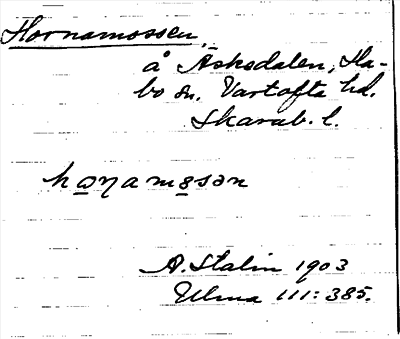 Hornamossen,
å Äsksdalen, Ha-
bo sn. Vartofta hd.
Skarab. l.
ha̲ŋamo̲sən
A. Stalin 1903
Ulma 111: 385.